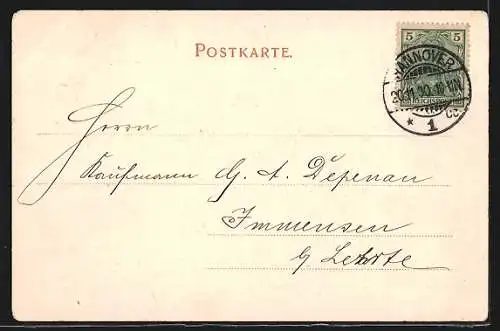 POSTKARTE.
5 5
HANNOVER
* 1 CC
Herrn
Kaufmann G. A. Depenau
Immensen
b/ Lehrte